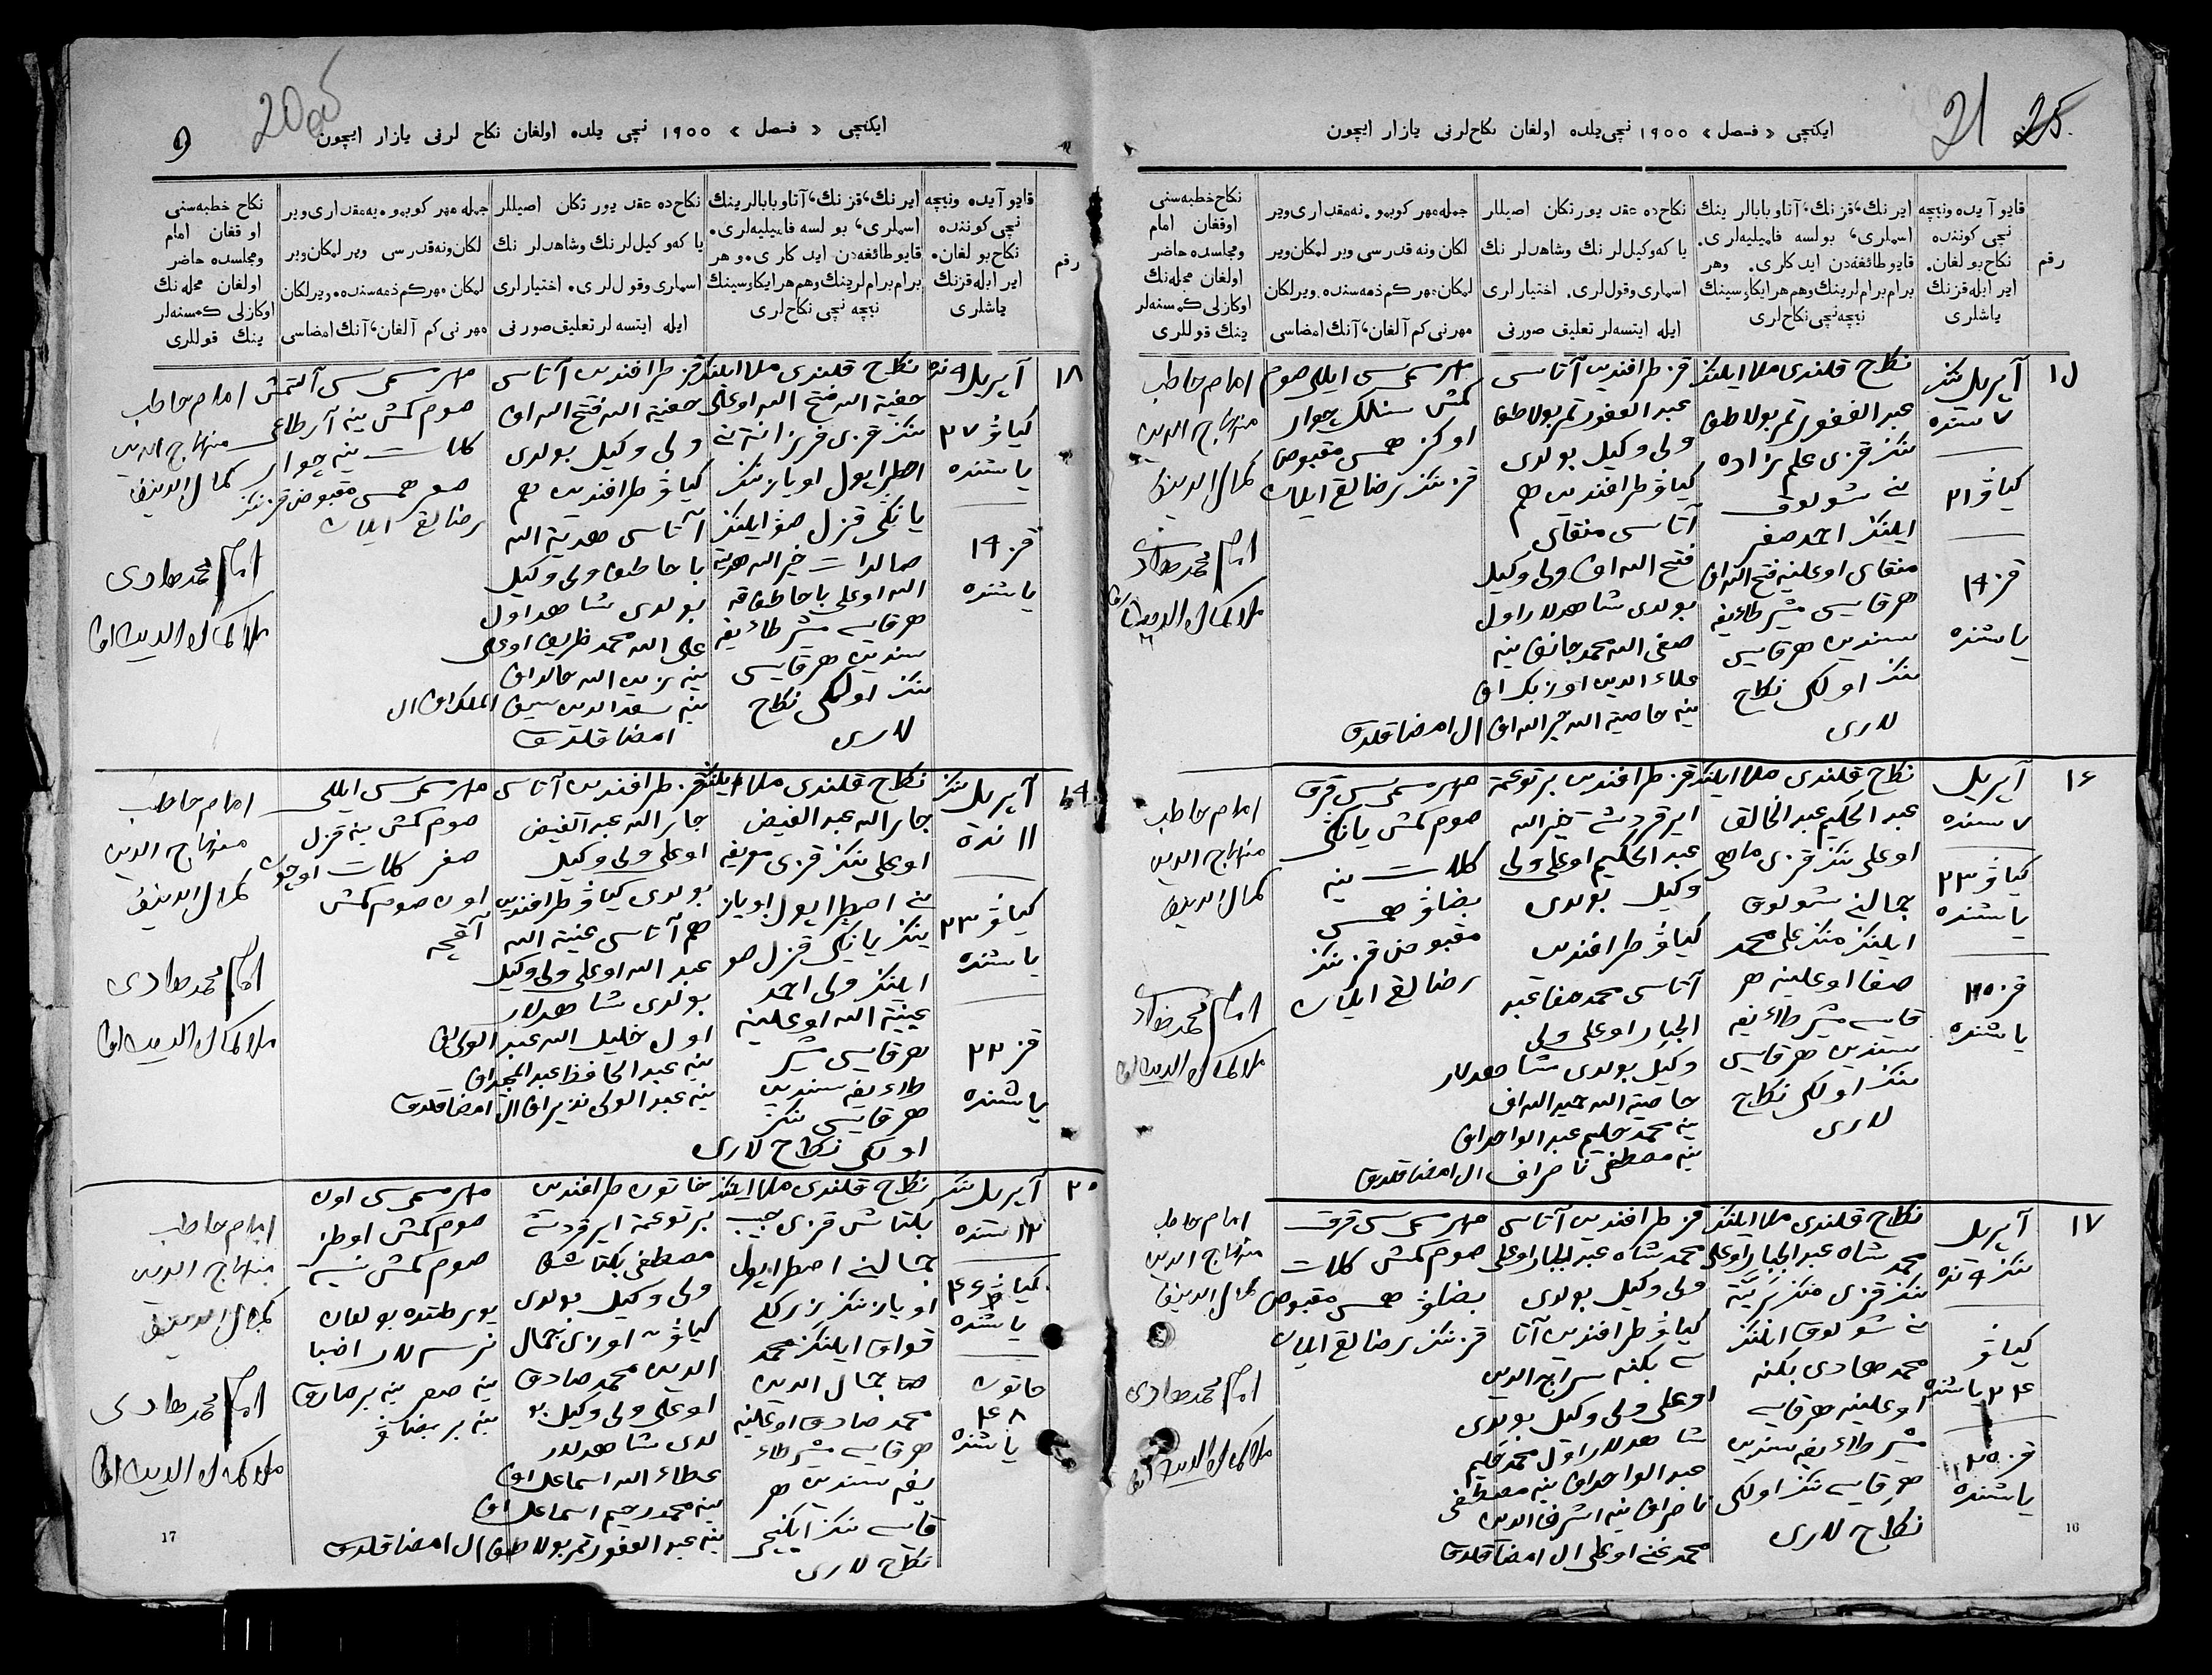 21 25
ایکنچی « فصل » ۱۹۰۰ نچی یلده اولغان نکاح لرنی یازار ایچون
رقم
قایو آیده ونیچه
نچی کوننده
نکاح بولغان.
ایر ایله قزننك
یاشلری
ایر ننك، قز ننك، آتا و بابالار ینك
اسملری، بولسه فامیلیه لری.
قایو طائفه دن ایدکاری. وهر
برام برام لرینك وهم هر ایکاوسینك
نیچه نچی نکاح لری
نکاح ده عقد یورتکان اصیللار
یا که وکیل لر ننك وشاهدلر ننك
اسماری وقول لری. اختیارلری
ایله ایتسه لر تعلیق صورنی
جمله مهر کوبمو. نه مقداری ویر
لکان ونه قدرسی ویر لمکان ویر
لمکان مهر کم ذمه سنده. ویرلکان
مهر نی کم آلغان، آننك امضاسی
نکاح خطبه سنی
اوقغان امام
ومجلسده حاضر
اولغان محله ننك
اوکازلی کمسنه لر
ینك قوللری
۱۵
آپریل ننکز
۷ سنده
کیاو ۲۱
قز ۱۹
یاشنده
نکاح قلندی ملا ایلننکز
عبد الغفور تمر بولاطف
ننکز قزی علم زاده
نی شولوق
ایلننکز احمد صفر
منقای اوغلینه فتح الله اف
هر قایسی مشر طائیفه
سندین هر قایسی
ننکز اولکی نکاح
لاری
قز طرافندین آتاسی
عبد الغفور تمر بولاطف
ولی وکیل بولدی
کیاو طرافندین هم
آتاسی منقای
فتح الله اف ولی وکیل
بولدی شاهدلار اول
صفی الله محمد جانف ینه
علاء الدین اوزبک اف
ینه خاصیة الله خیر الله اف ال امضا قلدق
مهر مسمی سی ایللی صوم
کمش سنلک چوار
اوکز همسی مقبوض
قز ننکز رضالغی ایلان
امام خاطب
منهاج الدین
کمال الدینف
امام محمد هادی
ملا کمال الدین اف
۱۶
آپریل
۷ سنده
کیاو ۲۳
یاشنده
قز ۲۵
یاشنده
نکاح قلندی ملا ایلننکز
عبد الحکیم عبد الخالق
اوغلی ننکز قزی ماهی
جمالنی شولوق
ایلننکز علی محمد
صفا اوغلینه هر
قایسی مشر طائیفه
سندین هر قایسی
ننکز اولکی نکاح
لاری
قز طرافندین بر توغمه
ایر قرداشی خیر الله
عبد الحکیم اوغلی ولی
وکیل بولدی
کیاو طرافندین
آتاسی محمد صفا عبد
الجبار اوغلی ولی
وکیل بولدی شاهدلار
خاصیة الله خیر الله اف
ینه محمد حلیم عبد الواحد اف
ینه مصطفی ناصراف ال امضا قلدق
مهر مسمی سی قرق
صوم کمش یانکی
کلات ینه
بضاو همسی
مقبوض قز ننکز
رضالغی ایلان
امام خاطب
منهاج الدین
کمال الدینف
امام محمد هادی
ملا کمال الدین اف
۱۷
آپریل
ننکز ۹ نده
کیاو
۲۴ یاشنده
قز ۲۵
یاشنده
نکاح قلندی ملا ایلننکز
محمد شاه عبد الجبار اوغلی
ننکز قزی
نی شولوق ایلننکز
محمد هادی بکنه
اوغلینه هر قایسی
مشر طائیفه سندین
هر قایسی ننکز اولکی
نکاح لاری
قز طرافندین آتاسی
محمد شاه عبد الجبار اوغلی
ولی وکیل بولدی
کیاو طرافندین آتا
سی بکنه سراج الدین
اوغلی ولی وکیل بولدی
شاهدلار اول محمد حلیم
عبد الواحد اف ینه مصطفی
ناصراف ینه اشرف الدین
محمد غنی اوغلی ال امضا قلدق
مهر مسمی سی قرق
صوم کمش کلات
بضاو همسی مقبوض
قز ننکز رضالغی ایلان
امام خاطب
منهاج الدین
کمال الدینف
امام محمد هادی
ملا کمال الدین اف
16
9
20 об
ایکنچی « فصل » ۱۹۰۰ نچی یلده اولغان نکاح لرنی یازار ایچون
رقم
قایو آیده ونیچه
نچی کوننده
نکاح بولغان.
ایر ایله قزننك
یاشلری
ایر ننك، قز ننك، آتا و بابالر ینك
اسملری، بولسه فامیلیه لری.
قایو طائفه دن ایدکاری. وهر
برام برام لرینك وهم هر ایکاوسینك
نیچه نچی نکاح لری
نکاح ده عقد یورتکان اصیللار
یا که وکیل لر ننك وشاهدلر ننك
اسماری وقول لری. اختیارلری
ایله ایتسه لر تعلیق صورنی
جمله مهر کوبمو. نه مقداری ویر
لکان ونه قدرسی ویر لمکان ویر
لمکان مهر کم ذمه سنده. ویرلکان
مهر نی کم آلغان، آننك امضاسی
نکاح خطبه سنی
اوقغان امام
ومجلسده حاضر
اولغان محله ننك
اوکازلی کمسنه لر
ینك قوللری
۱۸
آپریل ۹ نده
کیاو ۲۷
یاشنده
قز ۱۹
یاشنده
نکاح قلندی ملا ایلننکز
حفیة الله فتح الله اوغلی
ننکز قزی فریزا نة نی
اصطرابول اویاز ننکز
یانکی قزل صو ایلننکز
خیر الله هدیة
الله اوغلی باحاطفا قه
هر قایسی مشر طائیفه
سندین هر قایسی
ننکز اولکی نکاح
لاری
قز طرافندین آتاسی
حفیة الله فتح الله اف
ولی وکیل بولدی
کیاو طرافندین هم
آتاسی هدیة الله
باحاطف ولی وکیل
بولدی شاهد اول
علی الله محمد ظریف اوغلی
ینه زین الله خالد اف
ینه سعد الدین سیف الملک اف ال
امضا قلدق
مهر مسمی سی آلتمش
صوم کمش ینه آر طاغی
کلات ینه چوار
صغر همسی مقبوض قز ننکز
رضالغی ایلان
امام خاطب
منهاج الدین
کمال الدینف
امام محمد هادی
ملا کمال الدین اف
۱۹
آپریل ننکز
۱۱ نده
کیاو ۲۳
یاشنده
قز ۲۲
یاشنده
نکاح قلندی ملا ایلننکز
جار الله عبد الفیض
اوغلی ننکز قزی
نی اصطرابول اویاز
ننکز یانکی قزل صو
ایلننکز ولی احمد
عینیة الله اوغلینه
هر قایسی مشر
طائیفه سندین
هر قایسی ننکز
اولکی نکاح لاری
قز طرافندین آتاسی
جار الله عبد الفیض
اوغلی ولی وکیل
بولدی کیاو طرافندین
هم آتاسی عینیة الله
عبد الله اوغلی ولی وکیل
بولدی شاهدلار
اول خلیل الله عبد الولی اف
ینه عبد الحافظ عبد المجید اف
ینه عبد الولی نذیر اف ال امضا قلدق
مهر مسمی سی ایللی
صوم کمش ینه قزل
صغر کلات اوچون
اون صوم کمش
آقچه
امام خاطب
منهاج الدین
کمال الدینف
امام محمد هادی
ملا کمال الدین اف
۲۰
آپریل ننکز
۱۲ سنده
کیاو ۴۶
یاشنده
خاتون
۴۸
یاشنده
نکاح قلندی ملا ایلننکز
بکتاش قزی حبیب
جمالنی اصطرابول
اویاز ننکز
ایلننکز محمد
جمال الدین
محمد صادق اوغلینه
هر قایسی مشر طاء
یفه سندین هر
قایسی ننکز ایکینچی
نکاح لاری
خاتون طرافندین
بر توغمه ایر قرداشی
مصطفی بکتاشف
ولی وکیل بولدی
کیاو اوزی جمال
الدین محمد صادق
اوغلی ولی وکیل بو
لدی شاهدلار
عطاء الله اسماعیل اف
ینه محمد رحیم اسماعیل اف
ینه عبد الغفور تمر بولاطف ال امضا قلدق
مهر مسمی سی اون
صوم کمش اوطز
صوم کمش نسیه
یورطنده بولغان
نرسه لار
ینه صغر ینه بر صارق
ینه بر بضاو
امام خاطب
منهاج الدین
کمال الدینف
امام محمد هادی
ملا کمال الدین اف
17